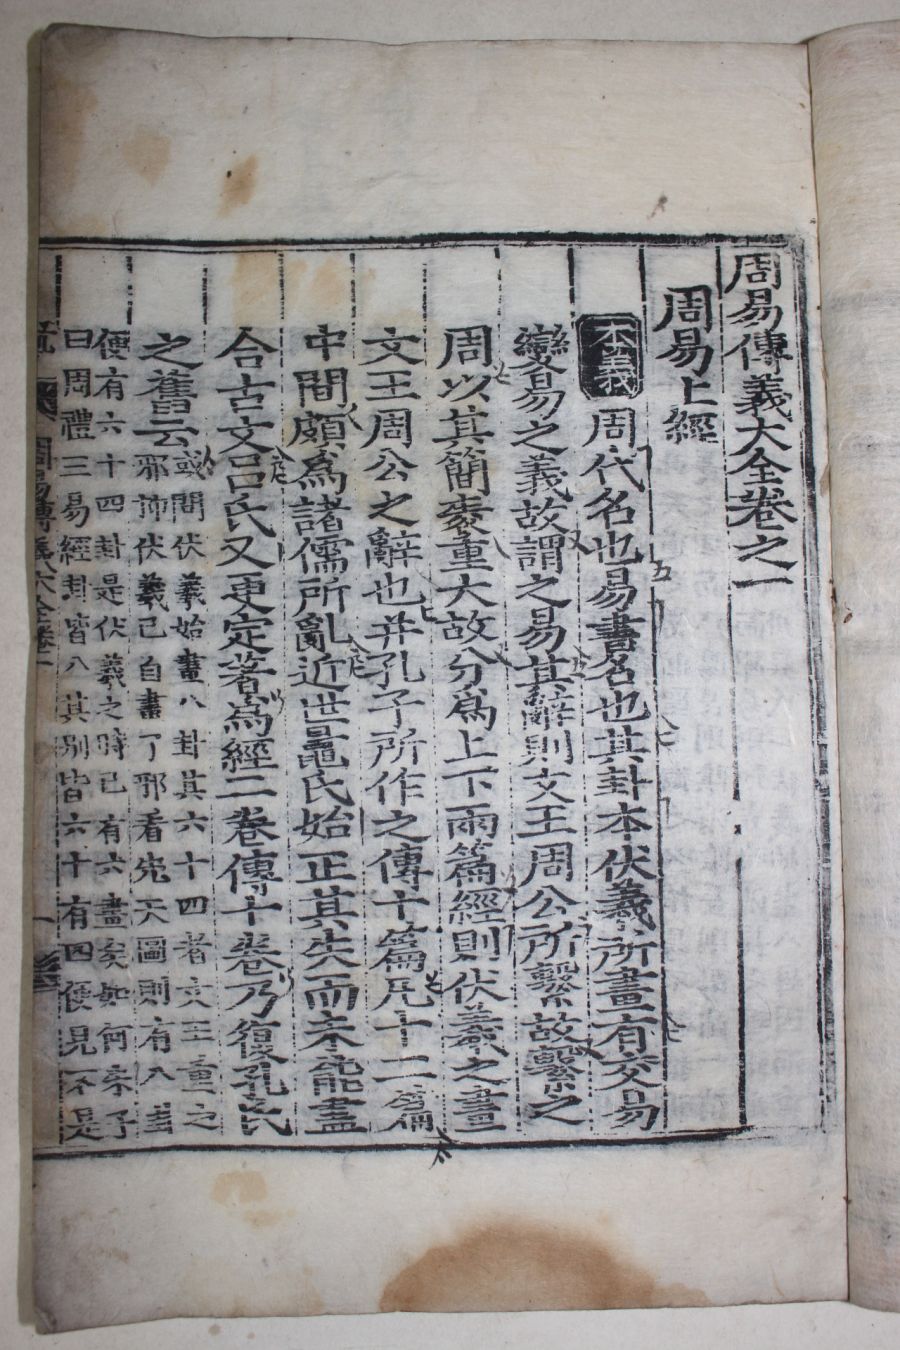 周易傳義大全卷之一
周易上經
本義 周代名也易書名也其卦本伏羲所畫有交易
變易之義故謂之易其辭則文王周公所繫故繫之
周以其簡袠重大故分爲上下兩篇經則伏羲之畫
文王周公之辭也幷孔子所作之傳十篇凡十二篇
中間頗爲諸儒所亂近世晁氏始正其失而未能盡
合古文呂氏又更定著爲經二卷傳十卷乃復孔氏
之舊云
或問伏羲始畫八卦其六十四者文王重之
邪抑伏羲已自畫了邪看先天圖則有八卦
便有六十四卦是伏羲之時已有六畫矣如何
曰周禮三易經卦皆八其別皆六十有四便見不是
周易傳義大全卷一